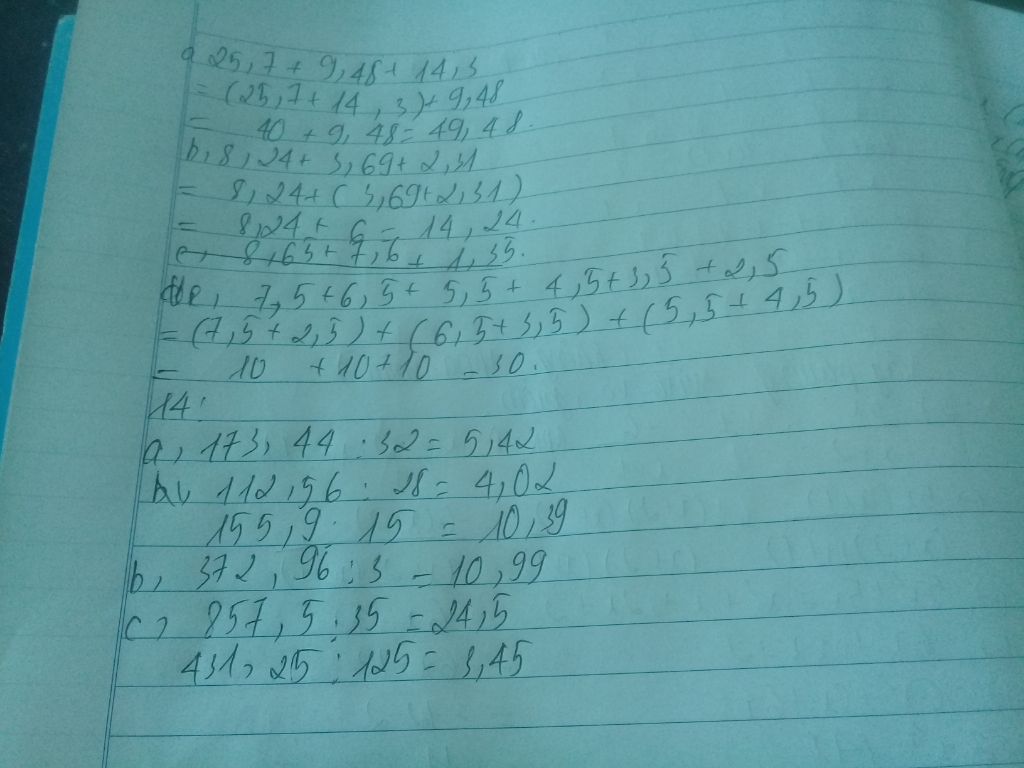 a 25,7 + 9,48 + 14,3
= (25,7 + 14,3) + 9,48
= 40 + 9,48 = 49,48.
b, 8,24 + 3,69 + 2,31
= 8,24 + (3,69 + 2,31)
= 8,24 + 6 = 14,24.
c, 8,65 + 7,6 + 1,35.
e, 7,5 + 6,5 + 5,5 + 4,5 + 3,5 + 2,5
= (7,5 + 2,5) + (6,5 + 3,5) + (5,5 + 4,5)
= 10 + 10 + 10 = 30.
14:
a, 173,44 : 32 = 5,42
112,56 : 28 = 4,02
155,9 : 15 = 10,39
b, 372,96 : 3 = 10,99
c, 857,5 : 35 = 24,5
431,25 : 125 = 3,45